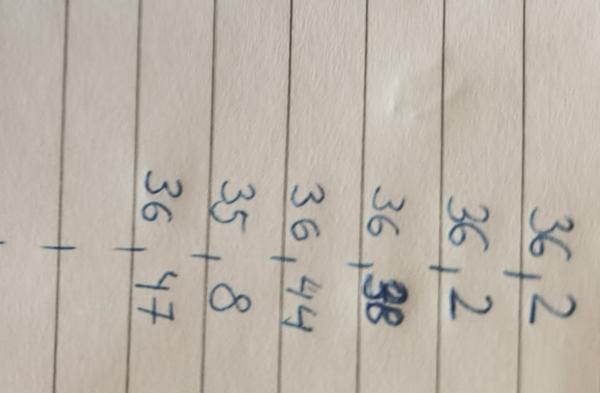 36,2
36,2
36,38
36,44
35,8
36,47